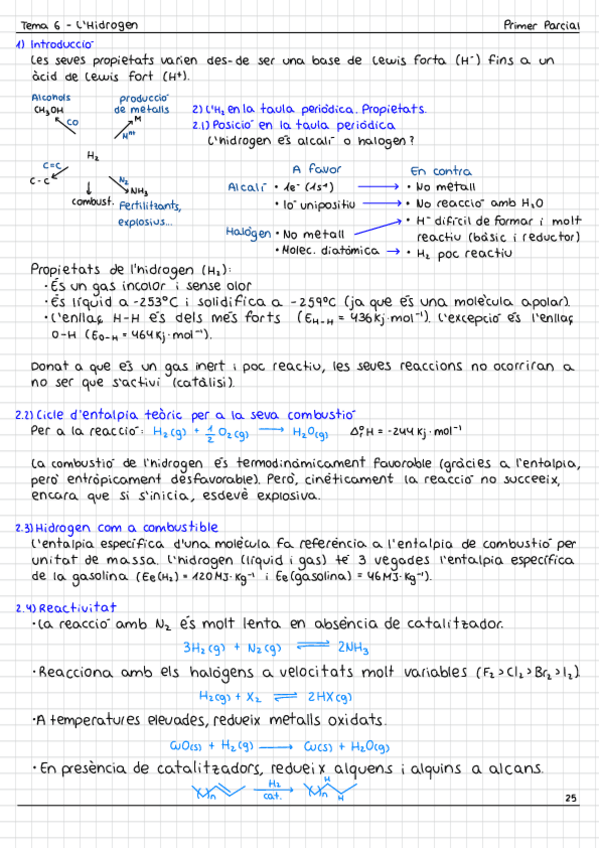 Tema 6 - L'Hidrogen
Primer Parcial
1) Introducció
Les seves propietats varien des-de ser una base de Lewis forta (H⁻) fins a un
àcid de Lewis fort (H⁺).
Alcohols
CH₃OH
CO
producció
de metalls
M
Hᵐ⁺
H₂
C=C
C-C
combust.
N₂
NH₃
Fertilitzants,
explosius...
2) L'H₂ en la taula periòdica. Propietats.
2.1) Posició en la taula periòdica
L'hidrogen és alcalí o halogen?
A favor
En contra
Alcalí • 1e⁻ (1s¹) → • No metall
• Ió unipositiu → • No reacció amb H₂O
Halògen • No metall → • H⁻ difícil de formar i molt
reactiu (bàsic i reductor)
• Molec. diatòmica → • H₂ poc reactiu
Propietats de l'hidrogen (H₂):
• És un gas incolor i sense olor
• És líquid a -253ºC i solidifica a -259ºC (ja que és una molècula apolar).
• L'enllaç H-H és dels més forts (E_H-H = 436Kj·mol⁻¹). L'excepció és l'enllaç
O-H (E_O-H = 464Kj·mol⁻¹).
Donat a que és un gas inert i poc reactiu, les seves reaccions no ocorriran a
no ser que s'activi (catàlisi).
2.2) Cicle d'entalpia teòric per a la seva combustió
Per a la reacció: H₂(g) + ½ O₂(g) → H₂O(g) ΔᵣºH = -244 Kj·mol⁻¹
La combustió de l'hidrogen és termodinàmicament favorable (gràcies a l'entalpia,
però entròpicament desfavorable). Però, cinèticament la reacció no succeeix,
encara que si s'inicia, esdevé explosiva.
2.3) Hidrogen com a combustible
L'entalpia específica d'una molècula fa referència a l'entalpia de combustió per
unitat de massa. L'hidrogen (líquid i gas) té 3 vegades l'entalpia específica
de la gasolina (Ee(H₂) = 120MJ·Kg⁻¹ i Ee(gasolina) = 46MJ·Kg⁻¹).
2.4) Reactivitat
• La reacció amb N₂ és molt lenta en absència de catalitzador.
3H₂(g) + N₂(g) ⇌ 2NH₃
• Reacciona amb els halògens a velocitats molt variables (F₂>Cl₂>Br₂>I₂)
H₂(g) + X₂ ⇌ 2HX(g)
• A temperatures elevades, redueix metalls oxidats.
CuO(s) + H₂(g) → Cu(s) + H₂O(g)
• En presència de catalitzadors, redueix alquens i alquins a alcans.
n H₂ cat. n H H
25